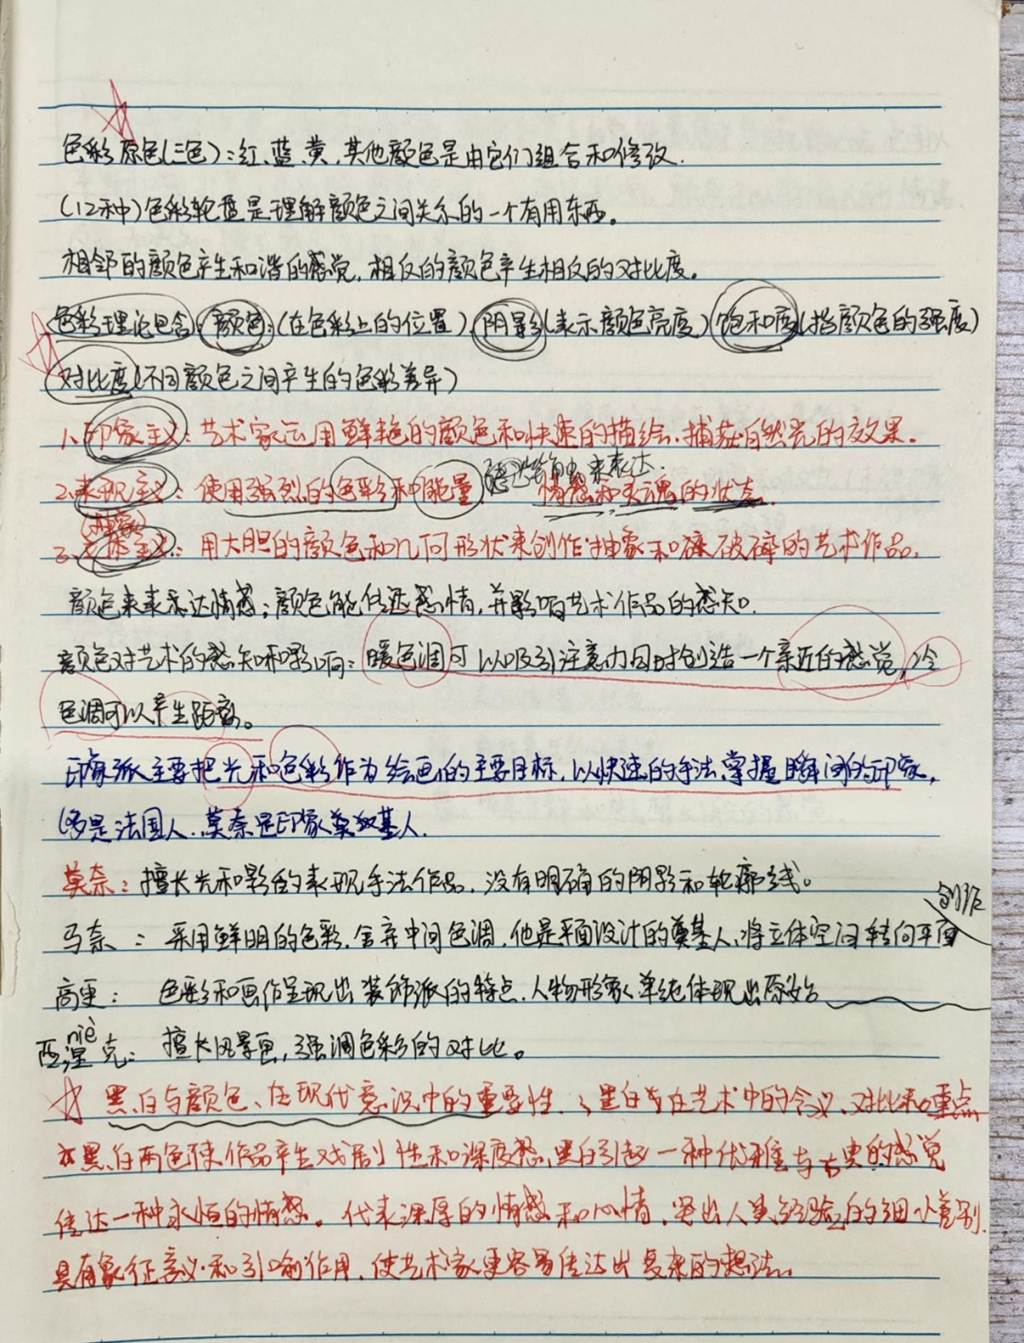 色彩原色(三色):红、蓝、黄,其他颜色是由它们组合和修改.
(12种)色彩轮盘是理解颜色之间关系的一个有用东西。
相邻的颜色产生和谐的感觉,相反的颜色产生相反的对比度。
色彩理论包含:颜色:(在色彩上的位置)阴影(表示颜色亮度)饱和度(指颜色的强度)
对比度(不同颜色之间产生的色彩差异)
1.印象主义:艺术家运用鲜艳的颜色和快速的描绘,捕获自然光的效果。
2.表现主义:使用强烈的色彩和能量 来表达: 情感和灵魂的状态.
3.主义:用大胆的颜色和几何形状来创作抽象和破碎的艺术作品.
颜色来表示达情感;颜色能传递感情,并影响艺术作品的感知.
颜色对艺术的感知和影响:暖色调可以吸引注意力同时创造一个亲近的感觉,冷
色调可以产生距离。
印象派主要把光和色彩作为绘画的主要目标,以快速的手法掌握瞬间的印象,
(多是法国人.莫奈是印象奠基人.
莫奈:擅长光和影的表现手法作品,没有明确的阴影和轮廓线。
创作
马奈:采用鲜明的色彩,舍弃中间色调,他是平面设计的奠基人,将立体空间转向平面
高更:色彩和画作呈现出装饰派的特点,人物形象单纯体现出原始
niè
西涅克:擅长风景画,强调色彩的对比。
黑白与颜色、在现代意识中的重要性.黑白在艺术中的含义,对比和重点
黑白两色使作品产生戏剧性和深度感,黑白引起一种优雅与古典的感觉
传达一种永恒的情感。代表深厚的情感和心情,突出人类经验的细小差别.
具有象征意义和引喻作用,使艺术家更容易传达出复杂的想法.